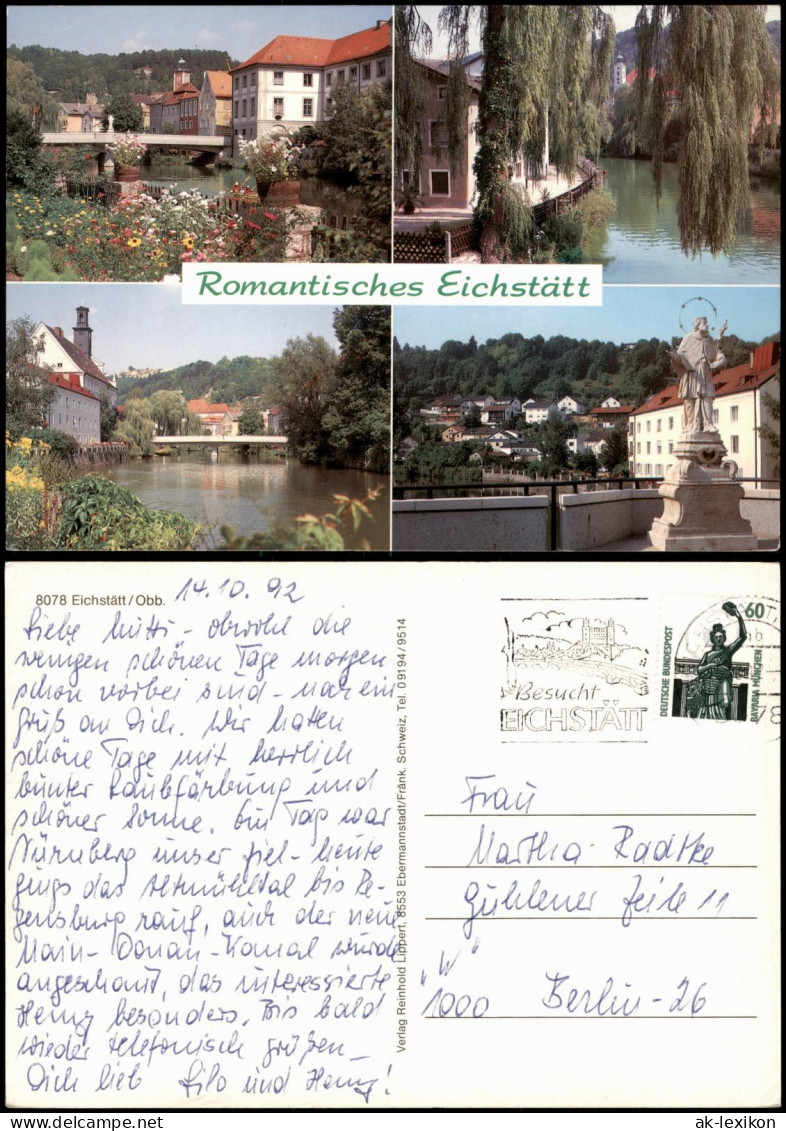 Romantisches Eichstätt
8078 Eichstätt/Obb.
14.10.92
Liebe Mutti - obwohl die
wenigen schönen Tage morgen
schon vorbei sind - noch ein
Gruß an Dich. Wir hatten
schöne Tage mit herrlich
bunter Laubfärbung und
schöner Sonne. Ein Tag war
Nürnberg unser Ziel - heute
gings das Altmühltal bis Re-
gensburg rauf, auch der neue
Main-Donau-Kanal wurde
angeschaut, das interessierte
Heinz besonders. Bis bald
wieder telefonisch grüßen
Dich lieb Lilo und Heinz!
Verlag Reinhold Lippert, 8553 Ebermannstadt/Fränk. Schweiz, Tel. 09194/9514
Besucht
EICHSTÄTT
DEUTSCHE BUNDESPOST
60
BAVARIA MÜNCHEN
Frau
Martha Radtke
Gühlener Zeile 11
"W"
1000 Berlin-26
ak-ansichtskarten.de
ak-lexikon